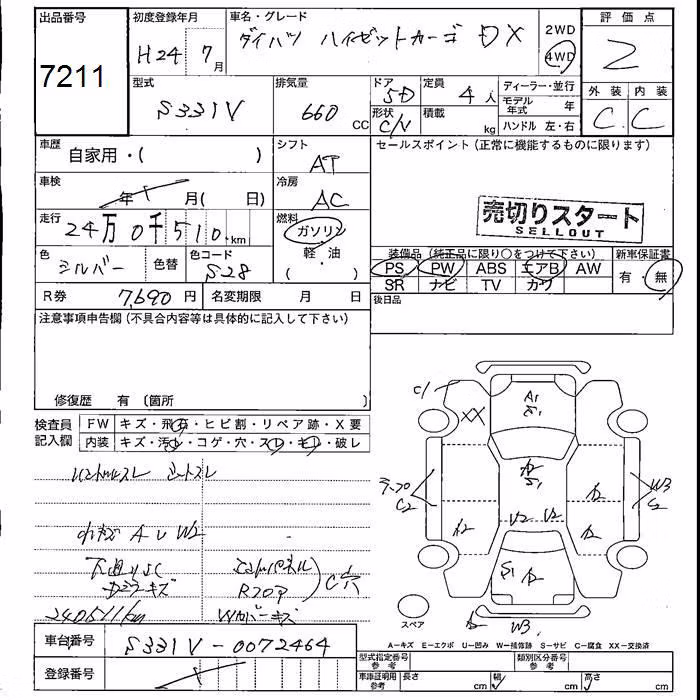 出品番号
7211
初度登録年月
H24 7月
車名・グレード
ダイハツ ハイゼットカーゴ DX
2WD
4WD
評価点
2
型式
S331V
排気量
660 CC
ドア
5D
形状
C/V
定員
4人
積載
kg
ディーラー・並行
モデル年式 年
ハンドル 左・右
外装 内装
C C
車歴
自家用・( )
シフト
AT
セールスポイント (正常に機能するものに限ります)
車検
年 月( 日)
冷房
AC
売切りスタート
SELLOUT
走行
24万0千510km
燃料
ガソリン
軽・油
( )
色
シルバー
色替
色コード
S28
装備品 (純正品に限り○をつけて下さい)
PS PW ABS エアB AW
SR ナビ TV カワ
新車保証書
有・無
R券 7,690円
名変期限 月 日
後日品
注意事項申告欄 (不具合内容等は具体的に記入して下さい)
修復歴 有 〔箇所
検査員記入欄
FW キズ・飛石・ヒビ割・リペア跡・X要
内装 キズ・汚れ・コゲ・穴・スレ・モレ・破レ
ハンドルスレ シートスレ
小キズ AU W2
下廻りSC
240511km
C穴
C1
XX
A1
S1
A2
S1
C2
W3
S2
A2
A2
A2
U2 U2
S1
A2
A2 W3
スペア
A−キズ E−エクボ U−凹み W−補修跡 S−サビ C−腐食 XX−交換済
車台番号
S331V-0072464
登録番号
型式指定番号 参考
類別区分番号 参考
車庫証明用 参考
長さ cm 幅 cm 高さ cm